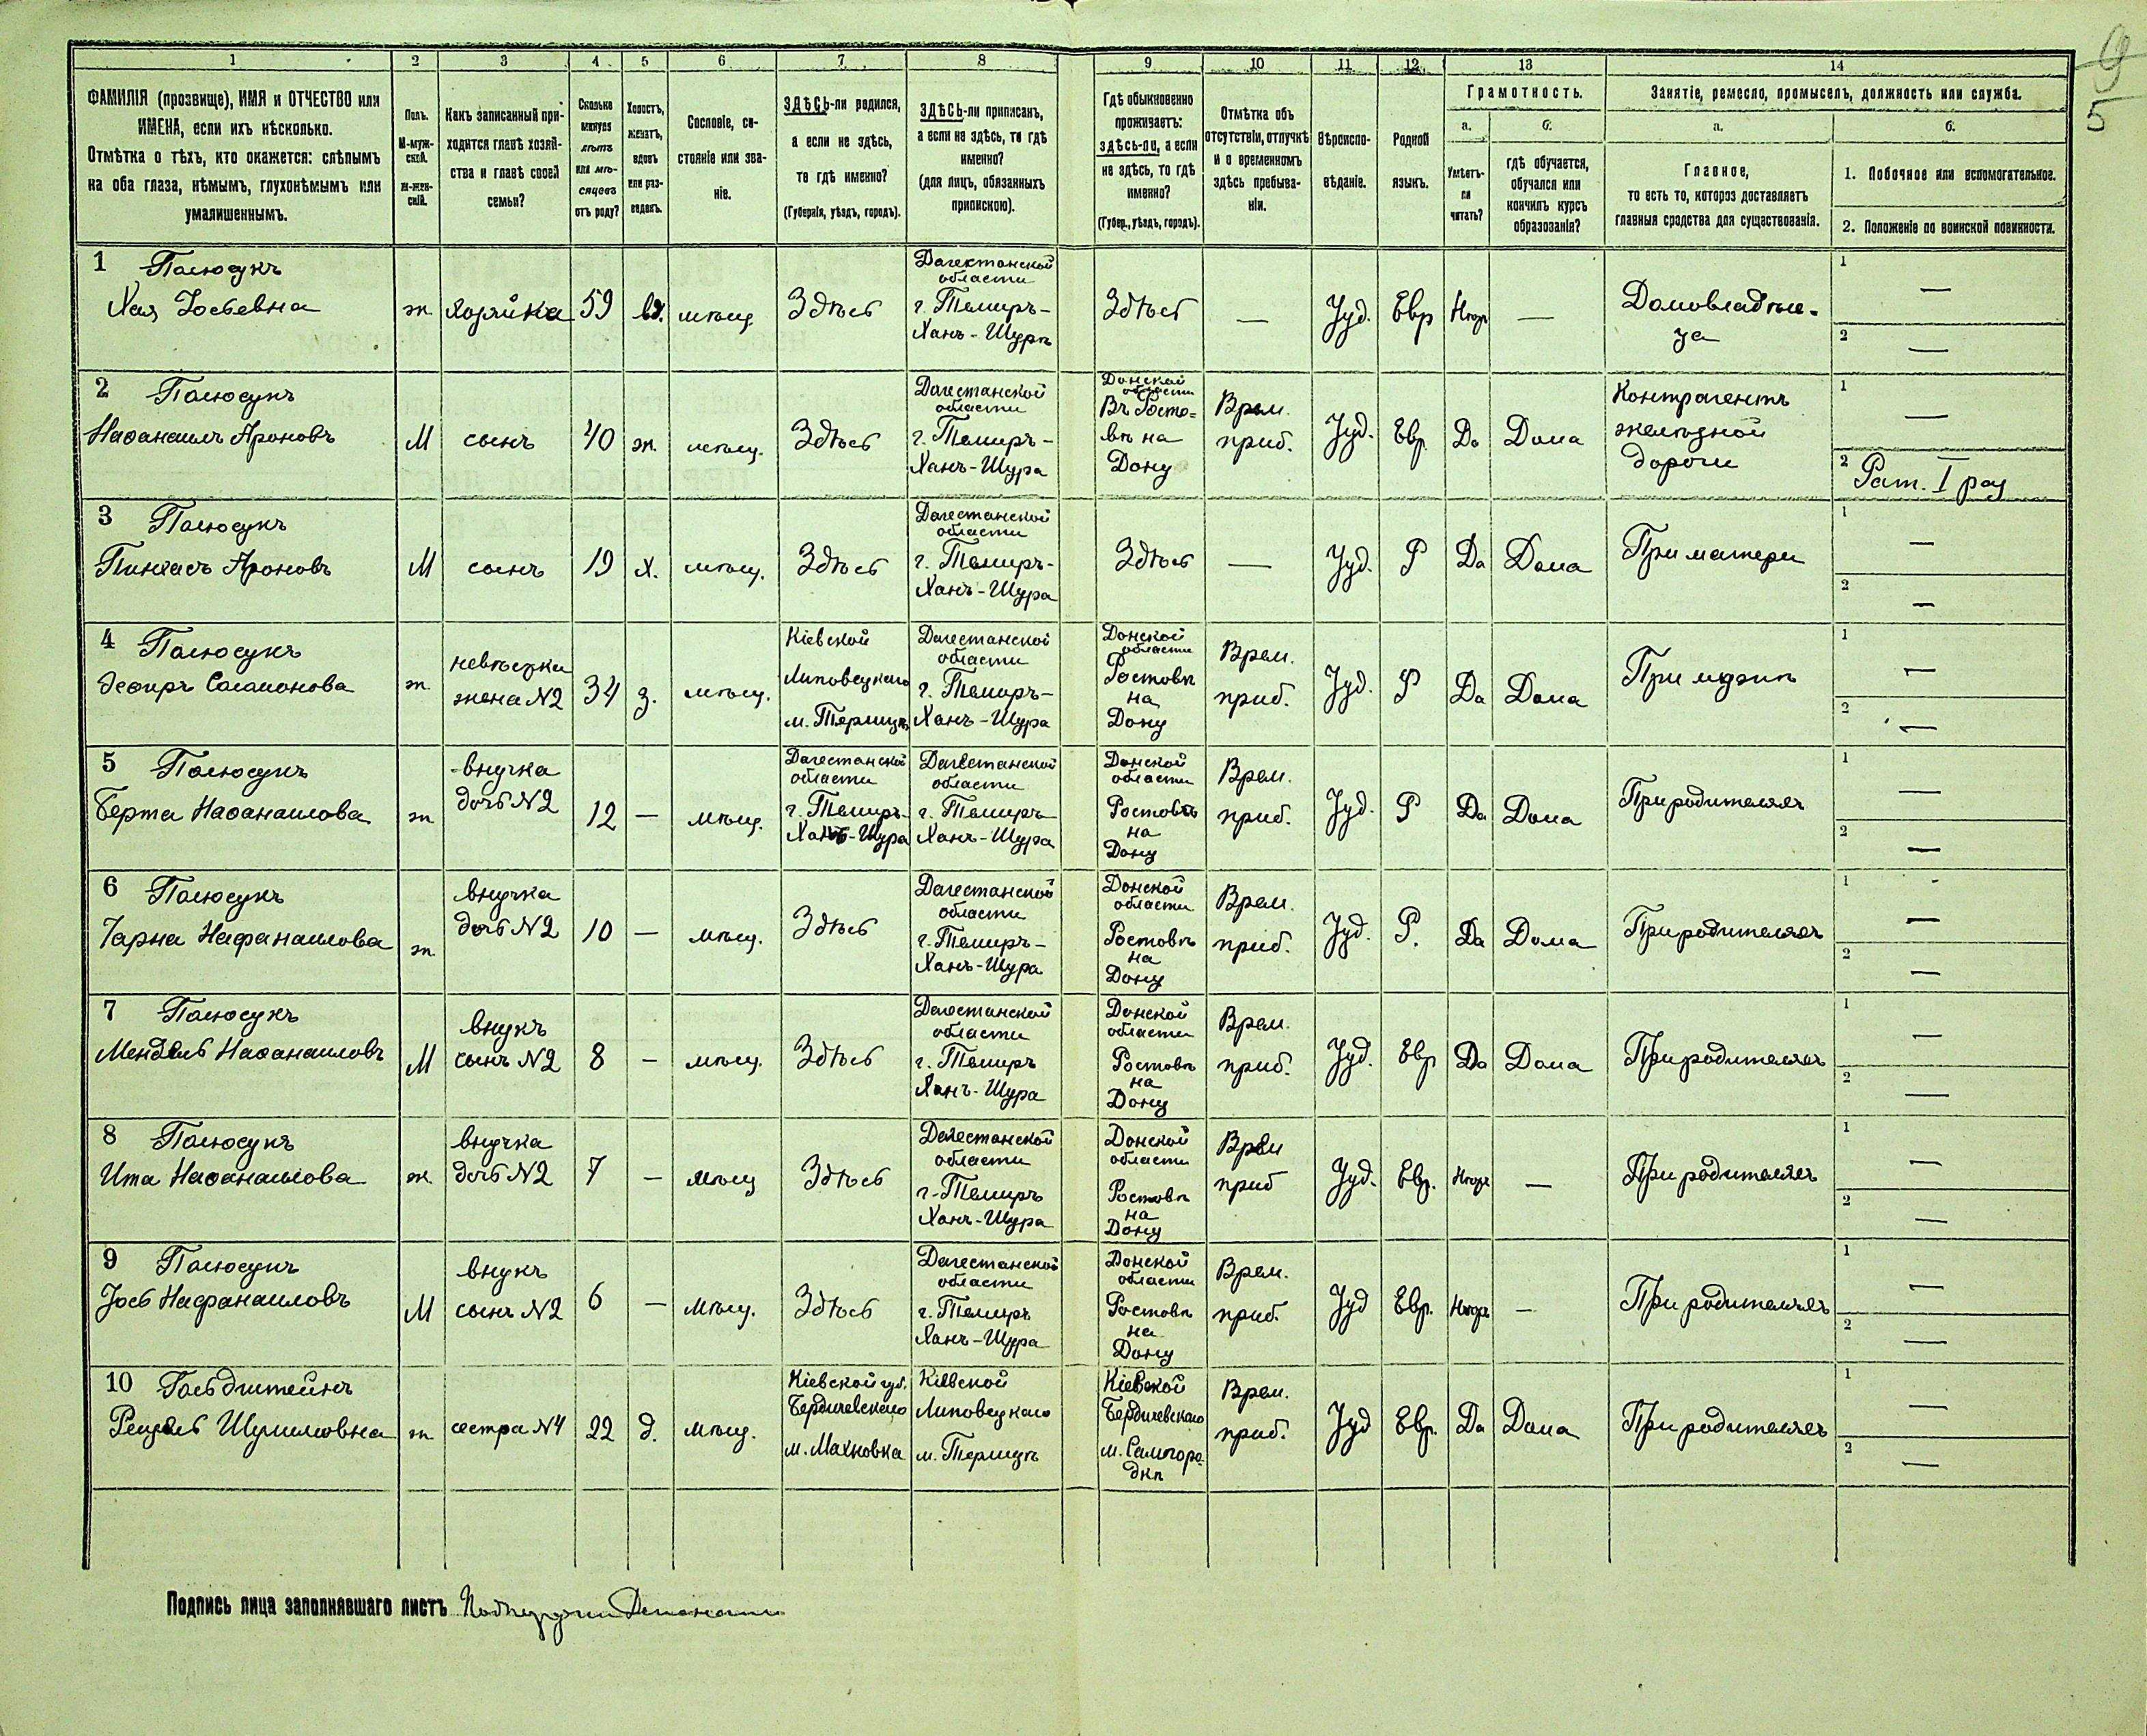 9
5
1 2 3 4 5 6 7 8 9 10 11 12 13 14
ФАМИЛІЯ (прозвище), ИМЯ и ОТЧЕСТВО или
ИМЕНА, если ихъ нѣсколько.
Отмѣтка о тѣхъ, кто окажется: слѣпымъ
на оба глаза, нѣмымъ, глухонѣмымъ или
умалишеннымъ.
Полъ.
М-муж-
ской.
Ж-жен-
скій.
Какъ записанный при-
ходится главѣ хозяй-
ства и главѣ своей
семьи?
Сколько
минуло
лѣтъ
или мѣ-
сяцевъ
отъ роду?
Холостъ,
женатъ,
вдовъ
или раз-
веденъ.
Сословіе, со-
стояніе или зва-
ніе.
ЗДѢСЬ-ли родился,
а если не здѣсь,
то гдѣ именно?
(Губернія, уѣздъ, городъ).
ЗДѢСЬ-ли приписанъ,
а если не здѣсь, то гдѣ
именно?
(для лицъ, обязанныхъ
припискою).
Гдѣ обыкновенно
проживаетъ:
здѣсь-ли, а если
не здѣсь, то гдѣ
именно?
(Губер., уѣздъ, городъ).
Отмѣтка объ
отсутствіи, отлучкѣ
и о временномъ
здѣсь пребыва-
ніи.
Вѣроиспо-
вѣданіе.
Родной
языкъ.
Грамотность.
а.
Умѣетъ-
ли
читать?
б.
гдѣ обучается,
обучался или
кончилъ курсъ
образованія?
Занятіе, ремесло, промыселъ, должность или служба.
а.
Главное,
то есть то, которое доставляетъ
главныя средства для существованія.
б.
1. Побочное или вспомогательное.
2. Положеніе по воинской повинности.
1 Палюсукъ
Хая Іосьевна
ж.
Хозяйка
59
вд.
мѣщ.
Здѣсь
Дагестанской
области
г. Темиръ-
Ханъ-Шурѣ
Здѣсь
—
Іуд.
Евр
—
Домовладѣли-
ца
1 —
2 —
2 Палюсукъ
Наѳанаилъ Ароновъ
М
сынъ
40
ж.
мѣщ.
Здѣсь
Дагестанской
области
г. Темиръ-
Ханъ-Шура
Донской
области
Въ Росто=
вѣ на
Дону
Врем.
приб.
Іуд.
Евр.
Да
Дома
Контрагентъ
желѣзной
дороги
1 —
2 Рат. I раз
3 Палюсукъ
Пинхасъ Ароновъ
М
сынъ
19
х.
мѣщ.
Здѣсь
Дагестанской
области
г. Темиръ-
Ханъ-Шура
Здѣсь
—
Іуд.
Р
Да
Дома
При матери
1 —
2 —
4 Палюсукъ
Эсѳиръ Саламонова
ж.
невѣстка
жена №2
34
з.
мѣщ.
Кіевской
Липовецкаго
м. Терлицѣ
Дагестанской
области
г. Темиръ-
Ханъ-Шура
Донской
области
Ростовѣ
на
Дону
Врем.
приб.
Іуд.
Р
Да
Дома
При мужѣ
1 —
2 —
5 Палюсукъ
Берта Наѳанаилова
ж
внучка
дочь №2
12
—
мѣщ.
Дагестанской
области
г. Темиръ-
Ханъ-Шура
Дагестанской
области
г. Темиръ
Ханъ-Шура
Донской
области
Ростовѣ
на
Дону
Врем.
приб.
Іуд.
Р
Да
Дома
При родителяхъ
1 —
2 —
6 Палюсукъ
Чарна Нафанаилова
ж.
внучка
дочь №2
10
—
мѣщ.
Здѣсь
Дагестанской
области
г. Темиръ-
Ханъ-Шура
Донской
области
Ростовѣ
на
Дону
Врем.
приб.
Іуд.
Р.
Да
Дома
При родителяхъ
1 —
2 —
7 Палюсукъ
Мендель Наѳанаиловъ
М
внукъ
сынъ №2
8
—
мѣщ.
Здѣсь
Дагестанской
области
г. Темиръ
Ханъ-Шура
Донской
области
Ростовѣ
на
Дону
Врем.
приб.
Іуд.
Евр
Да
Дома
При родителяхъ
1 —
2 —
8 Палюсукъ
Ита Наѳанаилова
ж.
внучка
дочь №2
7
—
мѣщ
Здѣсь
Дагестанской
области
г. Темиръ
Ханъ-Шура
Донской
области
Ростовѣ
на
Дону
Врем
приб
Іуд.
Евр.
—
При родителяхъ
1 —
2 —
9 Палюсукъ
Іось Нафанаиловъ
М
внукъ
сынъ №2
6
—
мѣщ.
Здѣсь
Дагестанской
области
г. Темиръ
Ханъ-Шура
Донской
области
Ростовѣ
на
Дону
Врем.
приб.
Іуд
Евр.
—
При родителяхъ
1 —
2 —
10 Гольдштейнъ
Рейзель Шулимовна
ж
сестра №4
22
д.
мѣщ.
Кіевской губ.
Бердичевскаго
м. Махновка
Кіевской
Липовецкаго
м. Терлицѣ
Кіевской
Бердичевскаго
м. Самгоро-
дкѣ
Врем.
приб.
Іуд
Евр.
Да
Дома
При родителяхъ
1 —
2 —
Подпись лица заполнявшаго листъ